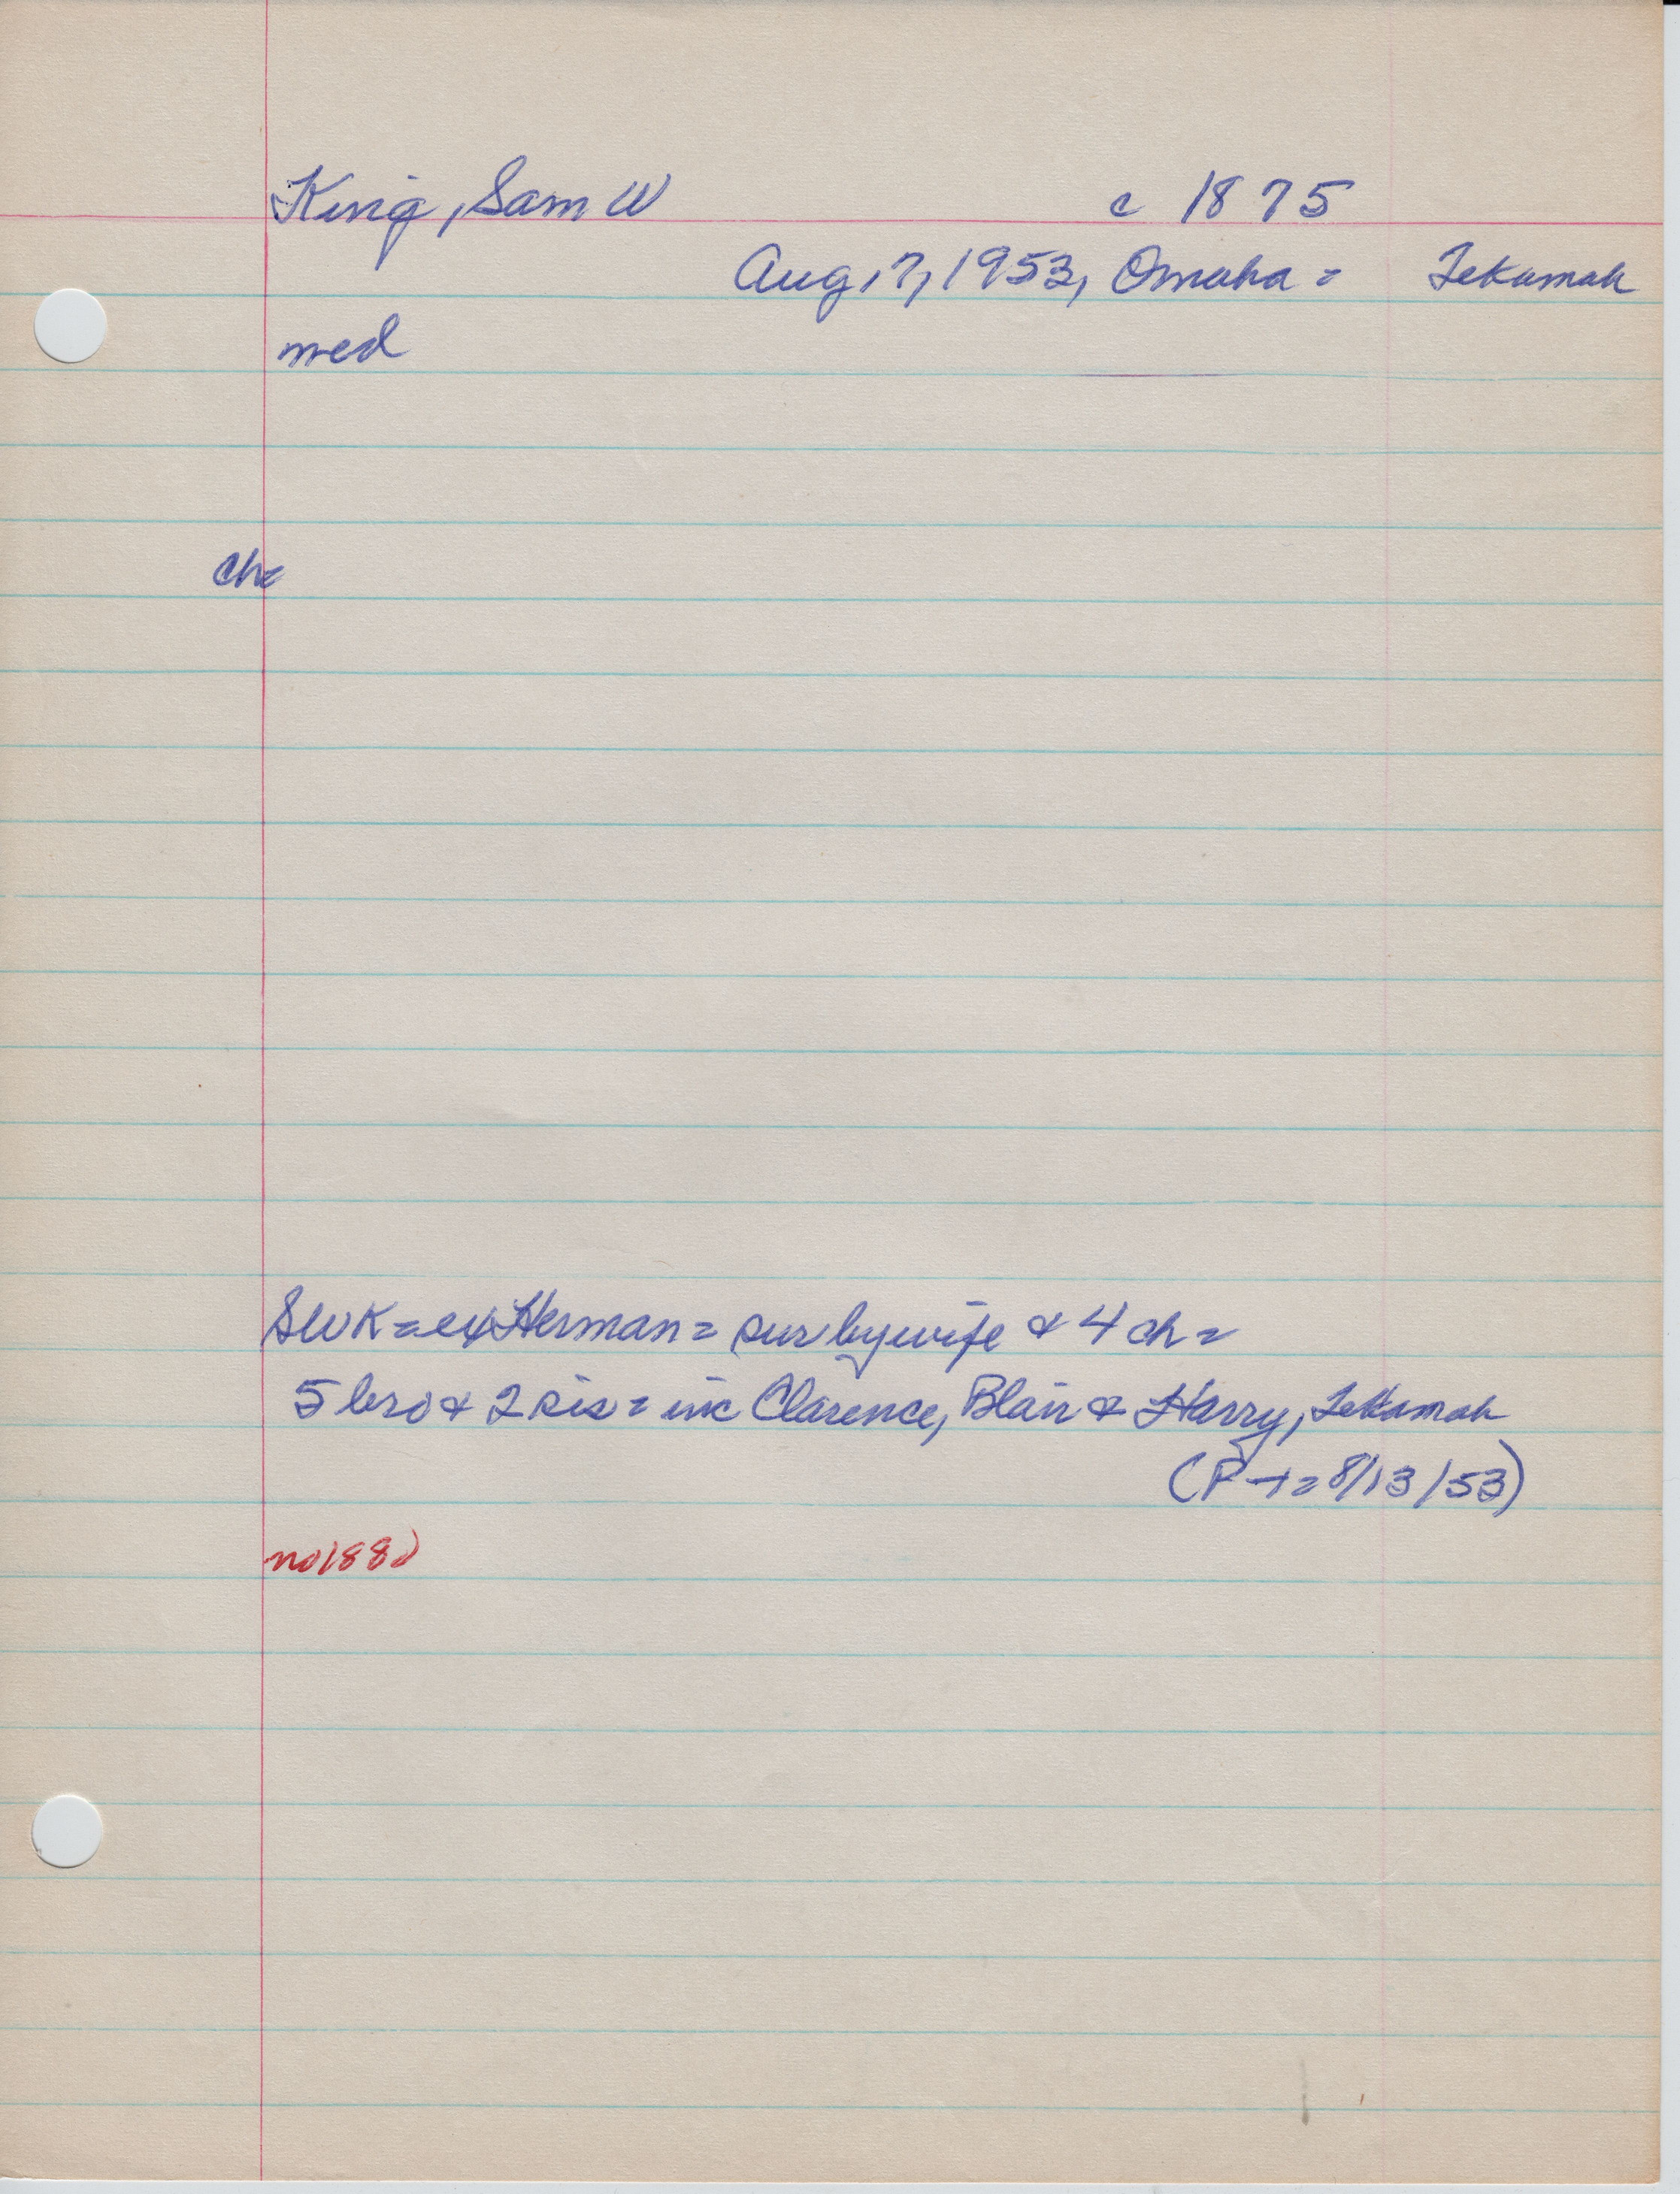 King, Sam W c 1875
Aug 7, 1953, Omaha = Tekamah
med
ch=
SWK = ex Herman = sur by wife & 4 ch =
5 bro & 2 sis = inc Clarence, Blair & Harry, Tekamah
(P-t = 8/13/53)
no 188